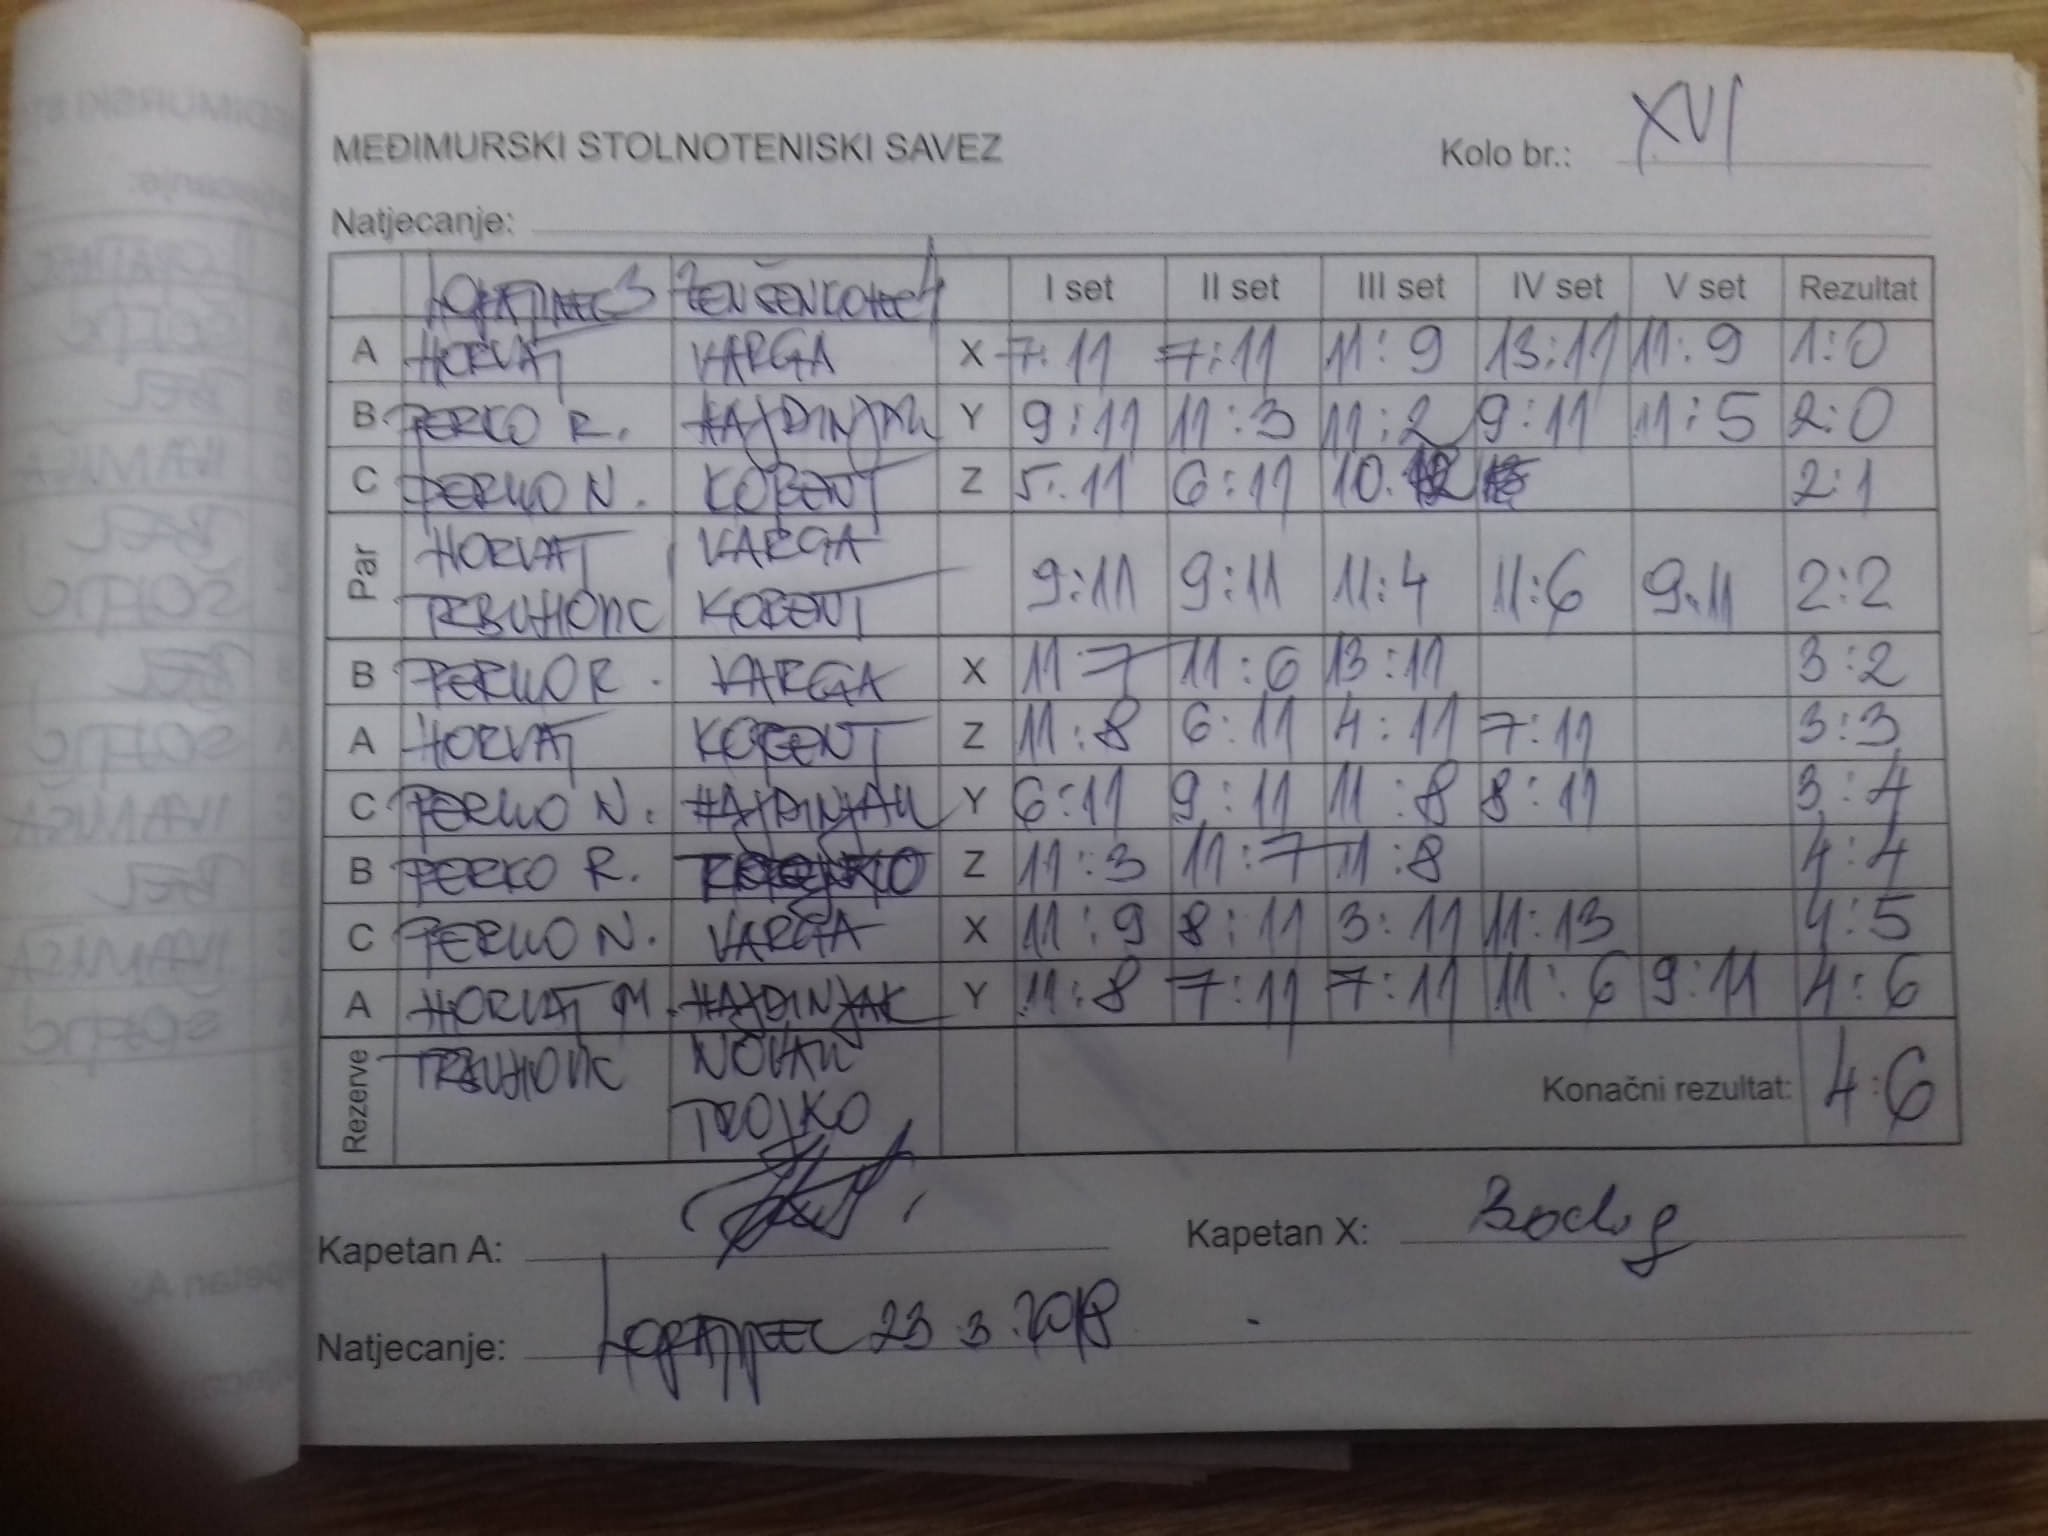 MEĐIMURSKI STOLNOTENISKI SAVEZ Kolo br.: XVI
Natjecanje:
LOPATINEC 3 I set II set III set IV set V set Rezultat
A HORVAT VARGA X 7:11 7:11 11:9 13:11 11:9 1:0
B PERKO R. HAJDINJAK Y 9:11 11:3 11:2 9:11 11:5 2:0
C PERKO N. KOBENT Z 5:11 6:11 10:12 2:1
Par HORVAT VARGA 9:11 9:11 11:4 11:6 9:11 2:2
TRBUHOVIC KOBENT
B PERKO R. VARGA X 11:7 11:6 13:11 3:2
A HORVAT KOBENT Z 11:8 6:11 4:11 7:11 3:3
C PERKO N. HAJDINJAK Y 6:11 9:11 11:8 8:11 3:4
B PERKO R. Z 11:3 11:7 11:8 4:4
C PERKO N. VARGA X 11:9 8:11 3:11 11:13 4:5
A HORVAT M. HAJDINJAK Y 11:8 7:11 7:11 11:6 9:11 4:6
Rezerve TRBUHOVIC NOVAK Konačni rezultat: 4:6
TROJKO
Kapetan A: Kapetan X:
Natjecanje: LOPATINEC 23.3.2018